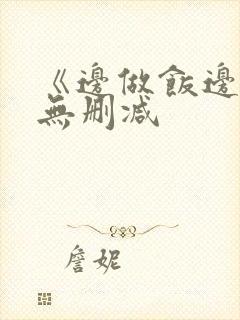 《邊做飯邊
無刪減
詹妮